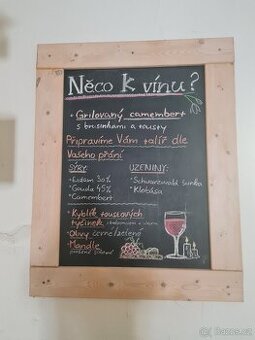 Něco k vínu?
• Grilovaný camembert
s brusinkami a tousty
Připravíme Vám talíř dle
Vašeho přání
SÝRY: UZENINY:
• Eidam 30% • Schwarzwald šunka
• Gouda 45% • Klobása
• Camembert
• Kyblík touslových
tyčinek
• Olivy černé/zelené
• Mandle
Bazos.cz